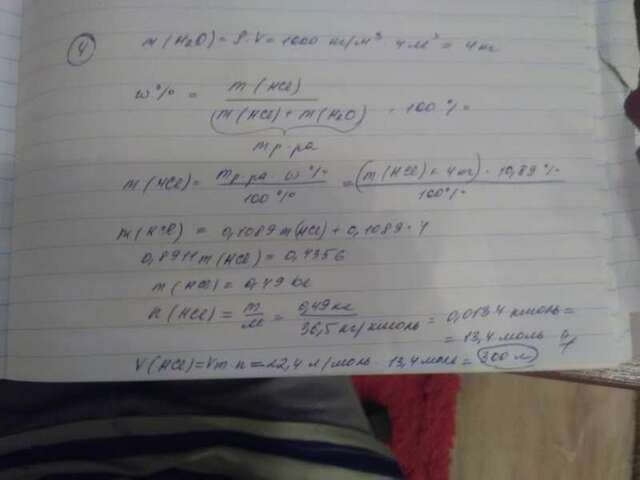 4
m(H2O) = ρ·V = 1000 кг/м³ · 4 м³ = 4 кг
ω% = m(HCl) / (m(HCl) + m(H2O)) · 100%
mр-ра
m(HCl) = mр-ра · ω% / 100% = (m(HCl) + 4 кг) · 10,89% / 100%
m(HCl) = 0,1089 m(HCl) + 0,1089 · 4
0,8911 m(HCl) = 0,4356
m(HCl) = 0,49 кг
n(HCl) = m/M = 0,49 кг / 36,5 кг/кмоль = 0,0134 кмоль =
= 13,4 моль
V(HCl) = Vm · n = 22,4 л/моль · 13,4 моль = 300 л